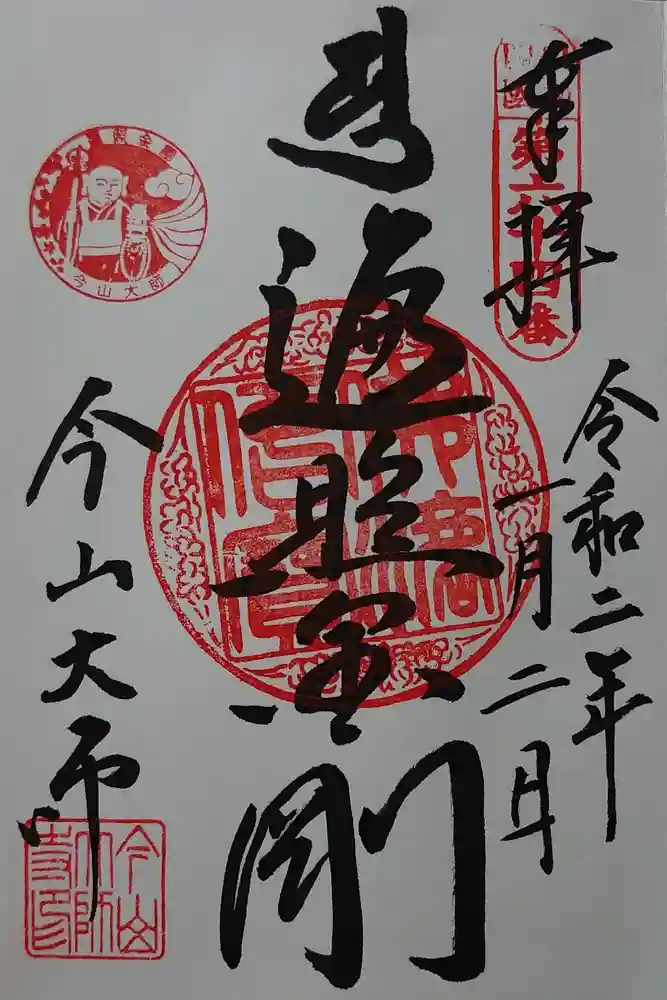 奉拝
令和二年
一月二日
遍照金剛
今山大師
今山大師
今山
大師
寺印